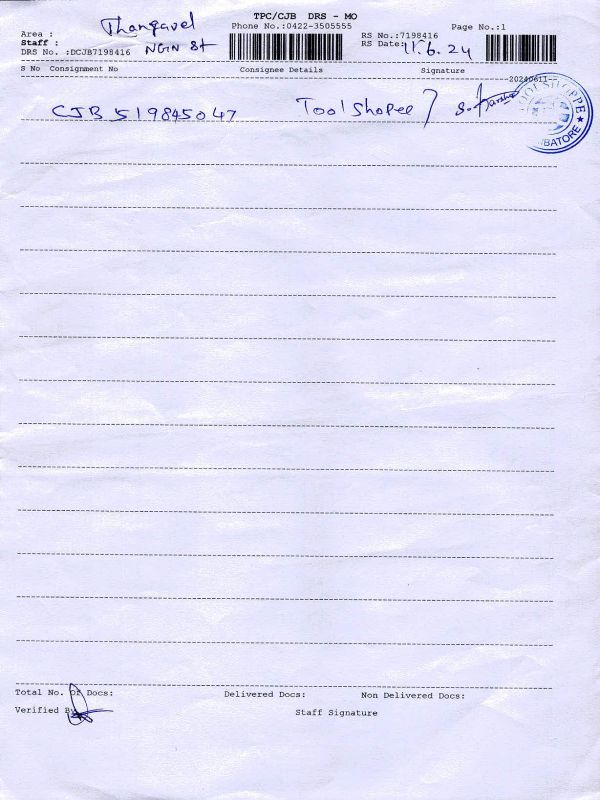 TPC/CJB DRS - MO
Area : Thangavel
Phone No.:0422-3505555
Page No.:1
Staff : NGN St
RS No.:7198416
DRS No. :DCJB7198416
RS Date: 11.6.24
S No Consignment No Consignee Details Signature
20240611
CJB 519845047 Tool Shopee
TOOL SHOPPE
COIMBATORE ★
Total No. Of Docs: Delivered Docs: Non Delivered Docs:
Verified By
Staff Signature